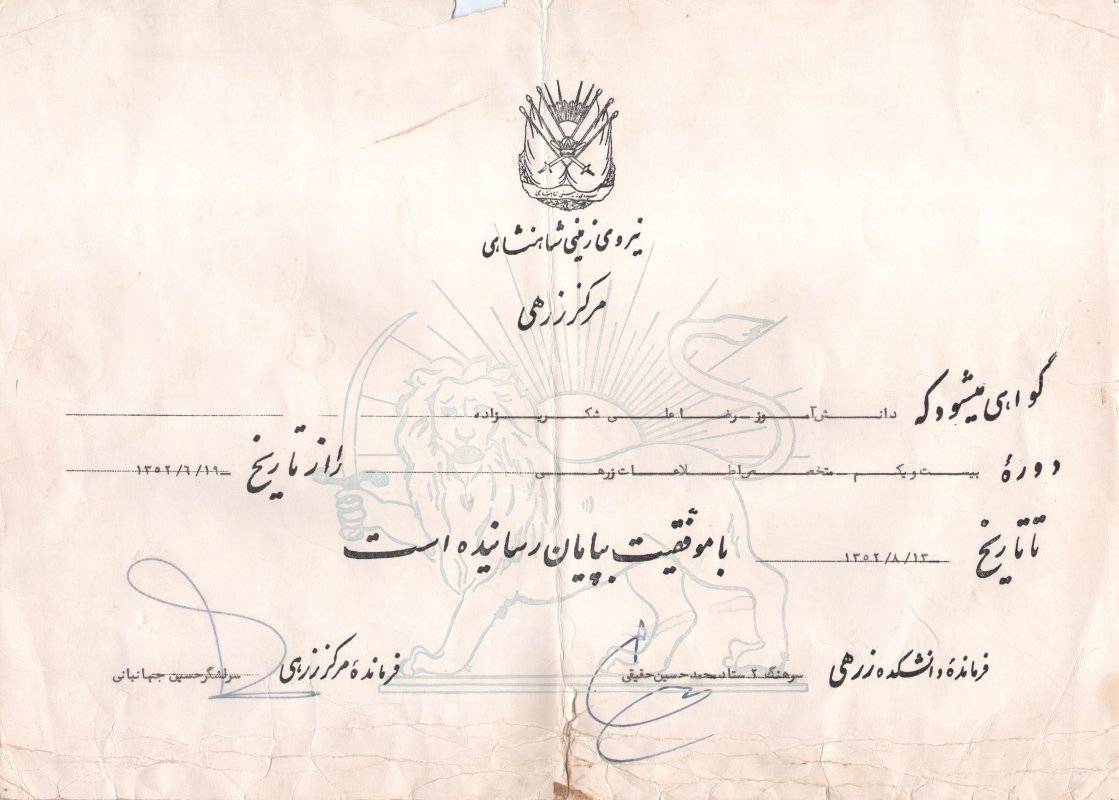 نیروی زمینی شاهنشاهی
نیروی زمینی شاهنشاهی
مرکز زرهی
گواهی میشود که دانش‌آموز رضا علی شکریزاده
دورهٔ بیست و یکم متخصص اطلاعات زرهی را از تاریخ ۱۳۵۲/۶/۱۹
تا تاریخ ۱۳۵۲/۸/۱۳ با موفقیت بپایان رسانیده است
فرماندهٔ دانشکده زرهی سرهنگ ۲ ستاد محمد حسین حقیقی فرماندهٔ مرکز زرهی سرلشگر حسین جهانبانی